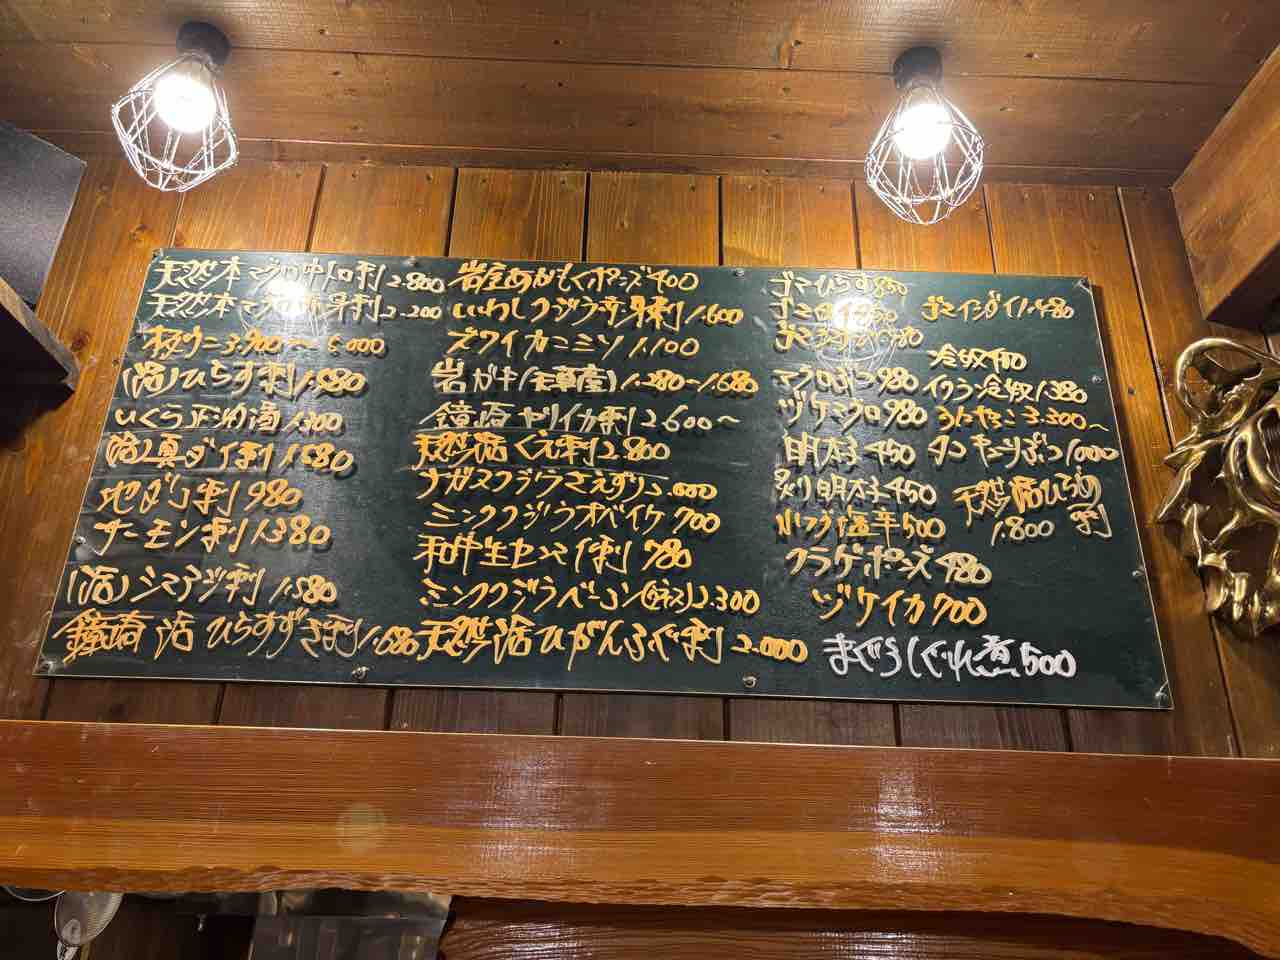 天然本マグロ中トロ刺2.800
天然本マグロ赤身刺2.200
ウニ3.900〜6.000
(活)ひらす刺1.580
いくら正油漬1.300
(活)真ダイ刺1.580
地ダコ刺980
サーモン刺1.380
(活)シマアジ刺1.580
鐘崎活ひらすずき刺1.680
あかもくポンズ400
いわしクジラ赤身刺1.600
ズワイカニミソ1.100
岩ガキ(天草産)1.280〜1.680
鐘崎ヤリイカ刺2.600〜
天然活くえ刺2.800
ナガスクジラさえずり2.000
ミンククジラオバイケ700
和牛生センマイ刺980
ミンククジラベーコン(ウネス)2.300
天然活ひがんふぐ刺2.000
ゴマひらす850
ゴマ
ゴマ
マグロぶつ980
ヅケマグロ980
明太子450
炙り明太子450
フグ塩辛500
クラゲポンズ480
ヅケイカ700
まぐろしぐれ煮500
ゴマイシダイ1.480
冷奴400
イクラ冷奴1.380
3.300〜
タコキューリぶつ1.000
天然活ひらめ刺
1.800